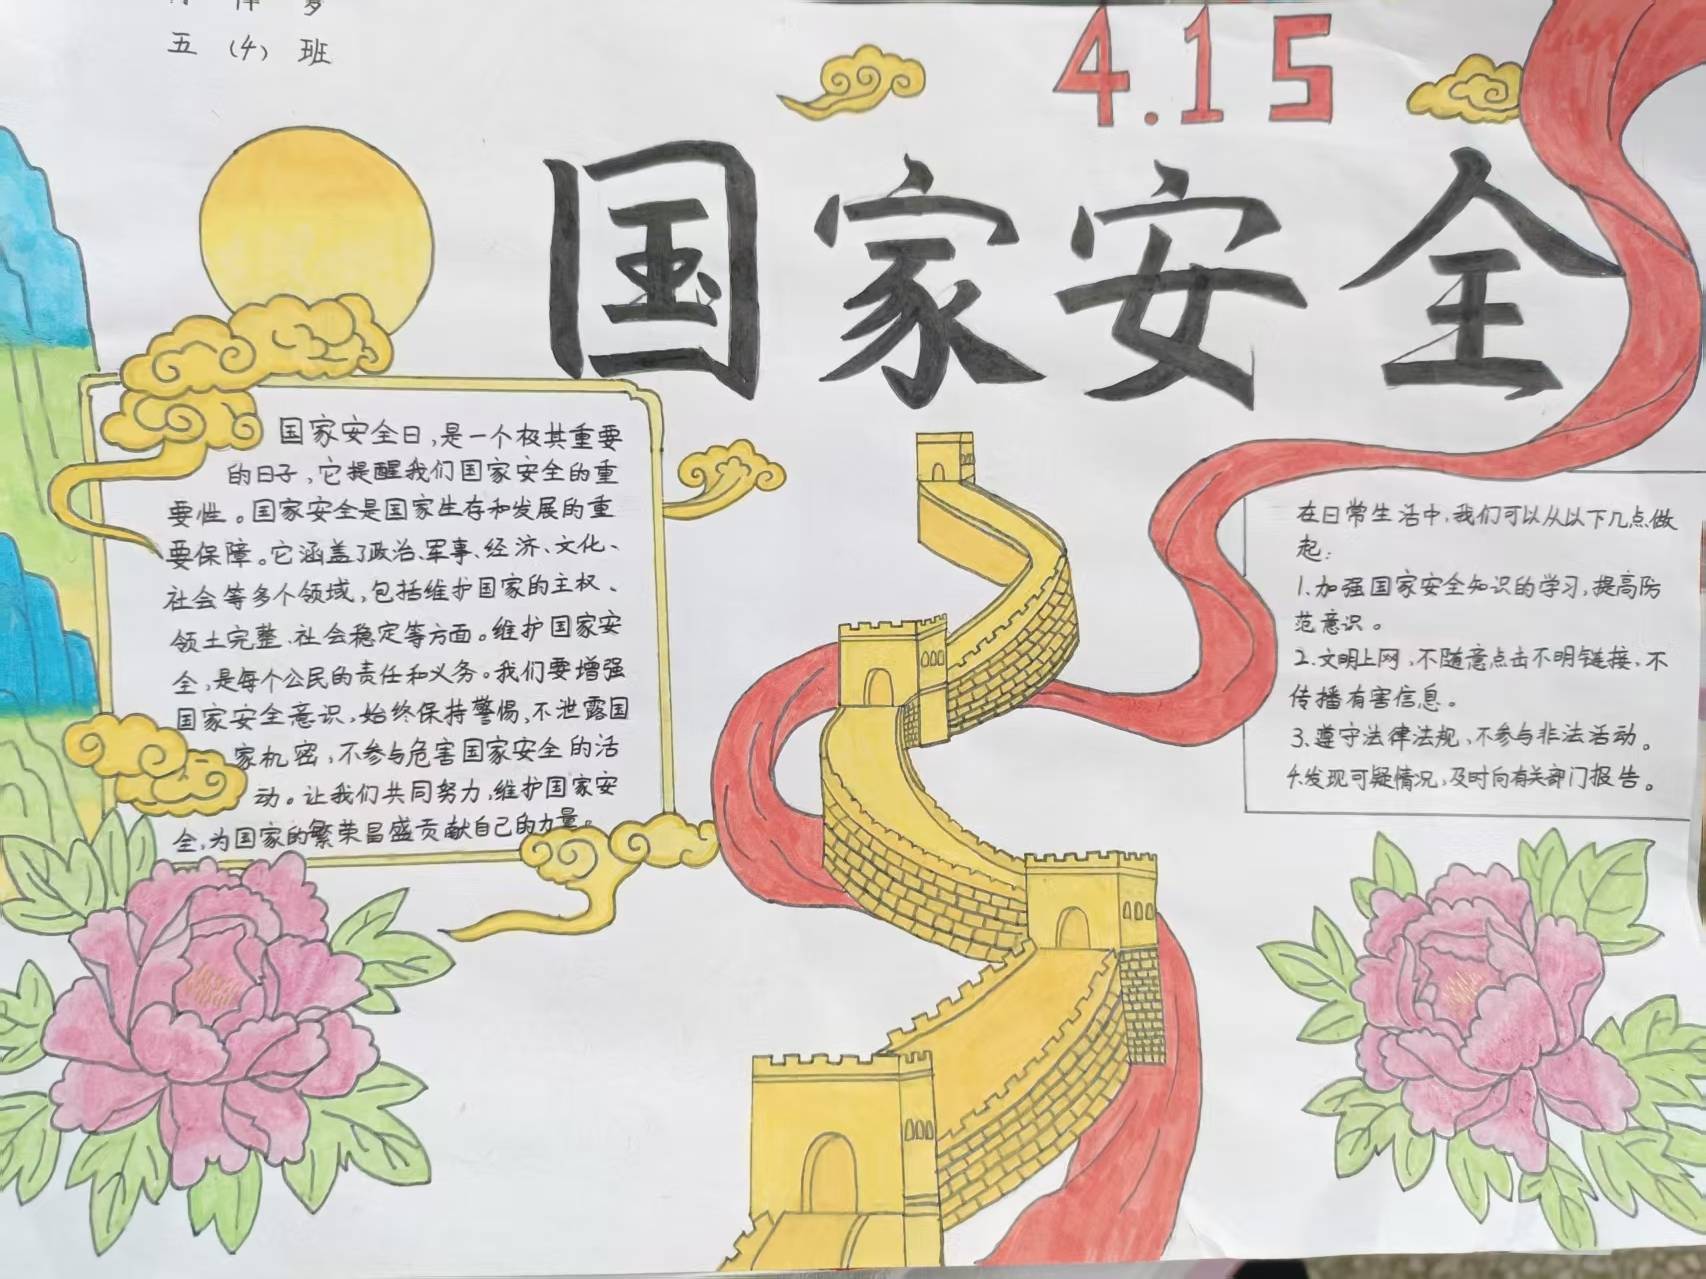 五（4）班
4.15
国家安全
国家安全日，是一个极其重要
的日子，它提醒我们国家安全的重
要性。国家安全是国家生存和发展的重
要保障。它涵盖了政治、军事、经济、文化、
社会等多个领域，包括维护国家的主权、
领土完整、社会稳定等方面。维护国家安
全，是每个公民的责任和义务。我们要增强
国家安全意识，始终保持警惕，不泄露国
家机密，不参与危害国家安全的活
动。让我们共同努力，维护国家安
全，为国家的繁荣昌盛贡献自己的力量。
在日常生活中，我们可以从以下几点做
起：
1.加强国家安全知识的学习，提高防
范意识。
2.文明上网，不随意点击不明链接，不
传播有害信息。
3.遵守法律法规，不参与非法活动。
4.发现可疑情况，及时向有关部门报告。